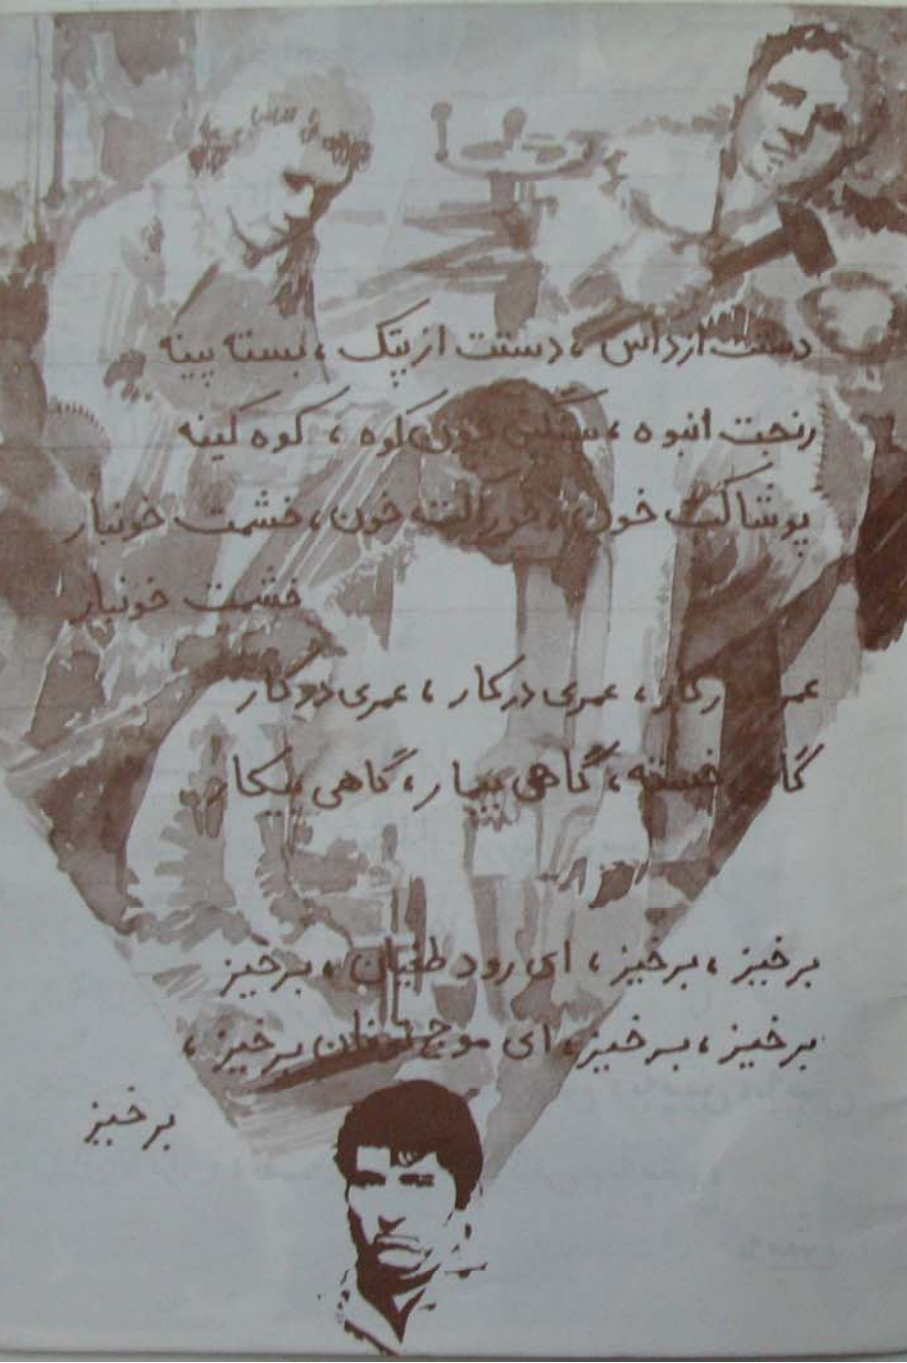 دستت از داس ، دستت از پتک ، بسته پینه
رنجت انبوه ، سنگین چون کوه ، کوه کینه
پوشاکت خون ، خوراکت خون ، خشمت خونبار
خشمت خونبار
عمر رکار ، عمری درکار ، عمری درکار
گا خسته ، گاهی بیمار ، گاهی بیکار
برخیز ، برخیز ، ای رود طغیان ، برخیز
برخیز ، برخیز ، ای موج توفان برخیز ،
برخیز